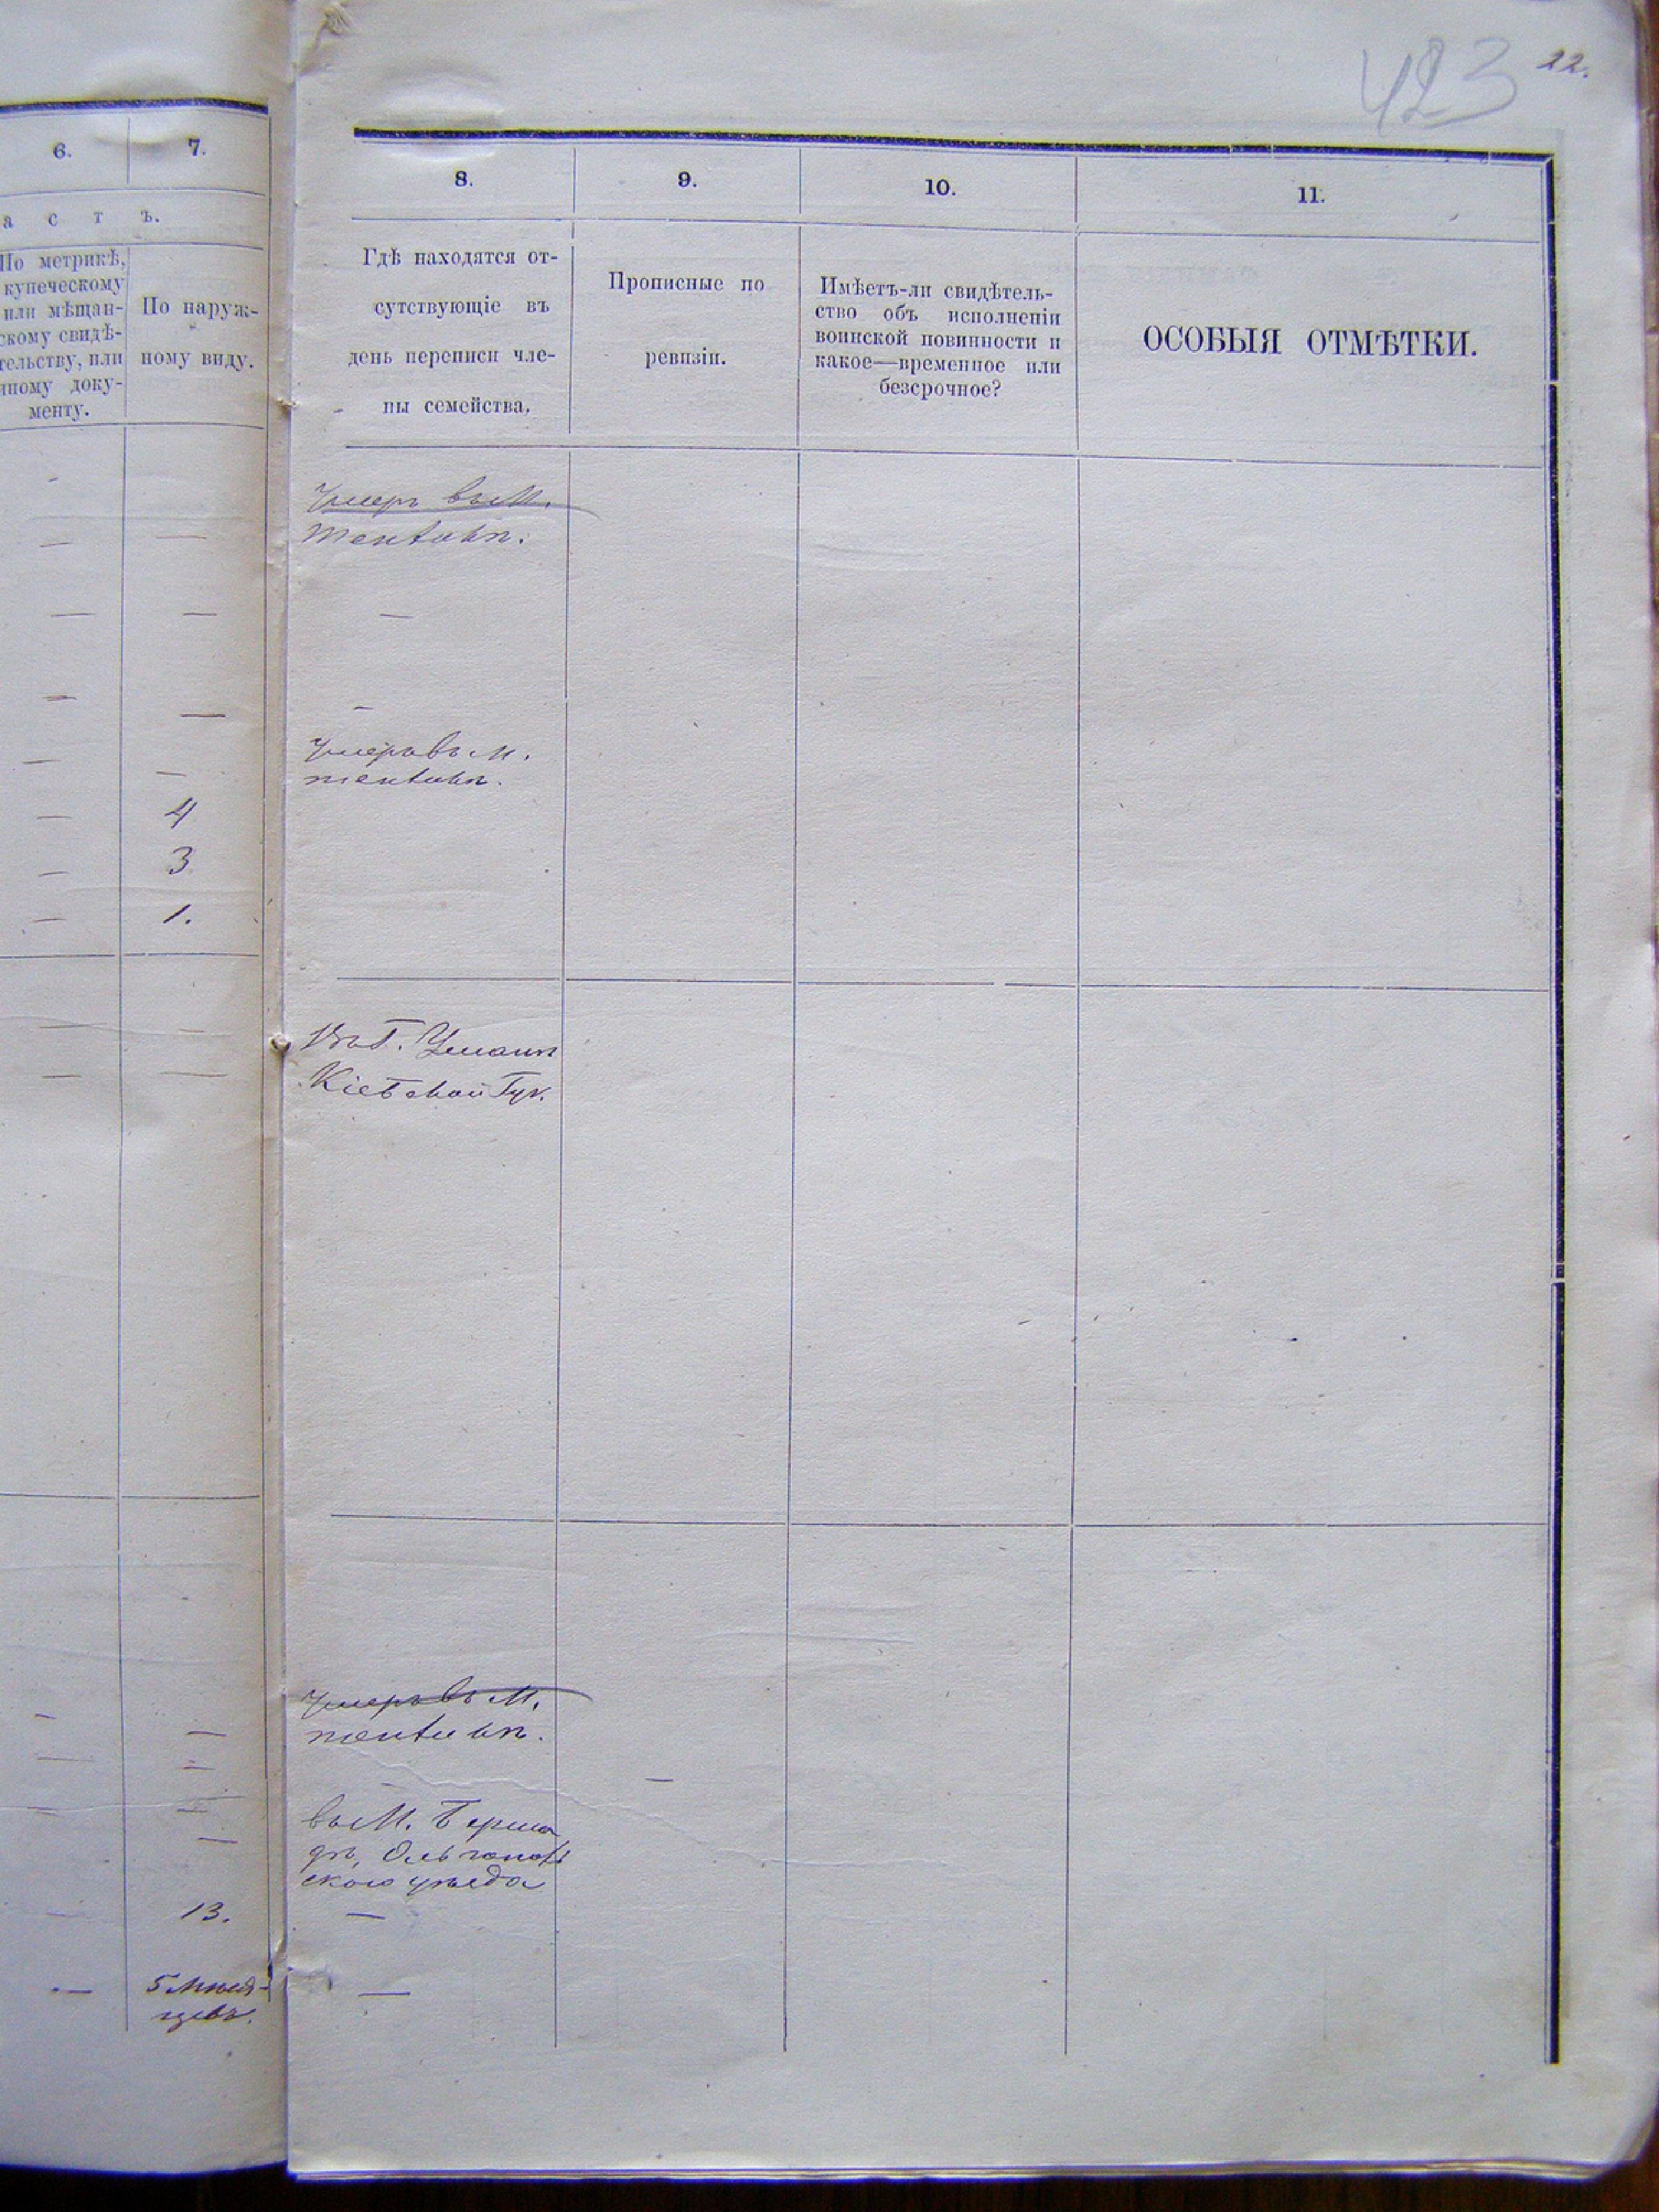 423 22.
6. 7.
а с т ъ.
По метрикѣ,
купеческому
или мѣщан-
скому свидѣ-
тельству, или
иному доку-
менту.
По наруж-
ному виду.
—
— —
— —
— —
— —
— 4
— 3
— 1.
— —
— —
— —
— —
— —
—
— 13.
— 5 мѣся-
цевъ.
8. 9. 10. 11.
Гдѣ находятся от-
сутствующіе въ
день переписи чле-
ны семейства.
Прописные по
ревизіи.
Имѣетъ-ли свидѣтель-
ство объ исполненіи
воинской повинности и
какое—временное или
безсрочное?
ОСОБЫЯ ОТМѢТКИ.
Умеръ въ М.
—
—
Умеръ въ М.
Въ Г. Умани
Кіевской Губ.
Умеръ въ М.
—
въ М. Берша
дѣ, Ольгопол
ского уѣзда
—
—